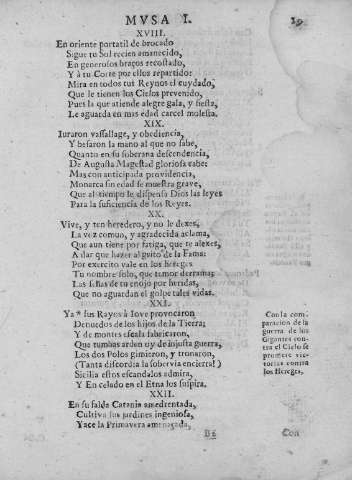 MVSA I.
19
XVIII.
En oriente portatil de brocado
Sigue tu Sol recien amanecido,
En generosos braços recostado,
Y à tu Corte por ellos repartido:
Mira en todos tus Reynos el cuydado,
Que le tienen los Cielos prevenido,
Pues la que atiende alegre gala, y fiesta,
Le aguarda en mas edad carcel molesta.
XIX.
Iuraron vassallage, y obediencia,
Y besaron la mano al que no sabe,
Quanto en su soberana descendencia,
De Augusta Magestad gloriosa cabe:
Mas con anticipada providencia,
Monarca sin edad se muestra grave,
Que al tiempo le dispensa Dios las leyes
Para la suficiencia de los Reyes.
XX.
Vive, y ten heredero, y no le dexes,
La voz comun, y agradecida aclama,
Que aun tiene por fatiga, que te alexes,
A dar que hazer al grito de la Fama:
Por exercito vale en los Hereges
Tu nombre solo, que temor derrama;
Las señas de tu enojo por heridas,
Que no aguardan el golpe tales vidas.
XXI.
Ya * sus Rayos à Iove provocaron
Denuedos de los hijos de la Tierra;
Y de montes escala fabricaron,
Que tumbas arden oy de injusta guerra,
Los dos Polos gimieron, y tronaron,
(Tanta discordia la sobervia encierra!)
Sicilia estos escandalos admira,
Y En celado en el Etna los suspira.
Con la com-
paracion de la
guerra de los
Gigantes con-
tra el Cielo se
promete vic-
torias contra
los Hereges,
XXII.
En su falda Catania amedrentada,
Cultiva sus jardines ingeniosa,
Yace la Primavera amenaçada,
B6
Con